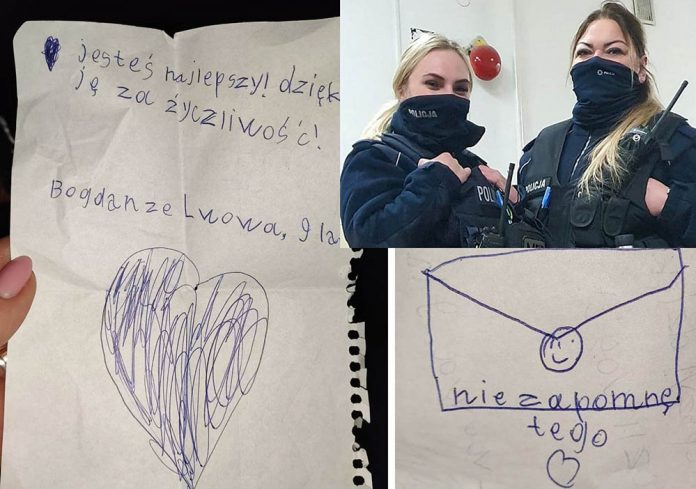 jesteś najlepszy! dzięk
ję za życzliwość!
Bogdan ze Lwowa, 9 la
POLICJA
POLI
POLICJA
nie zapomnę
tego